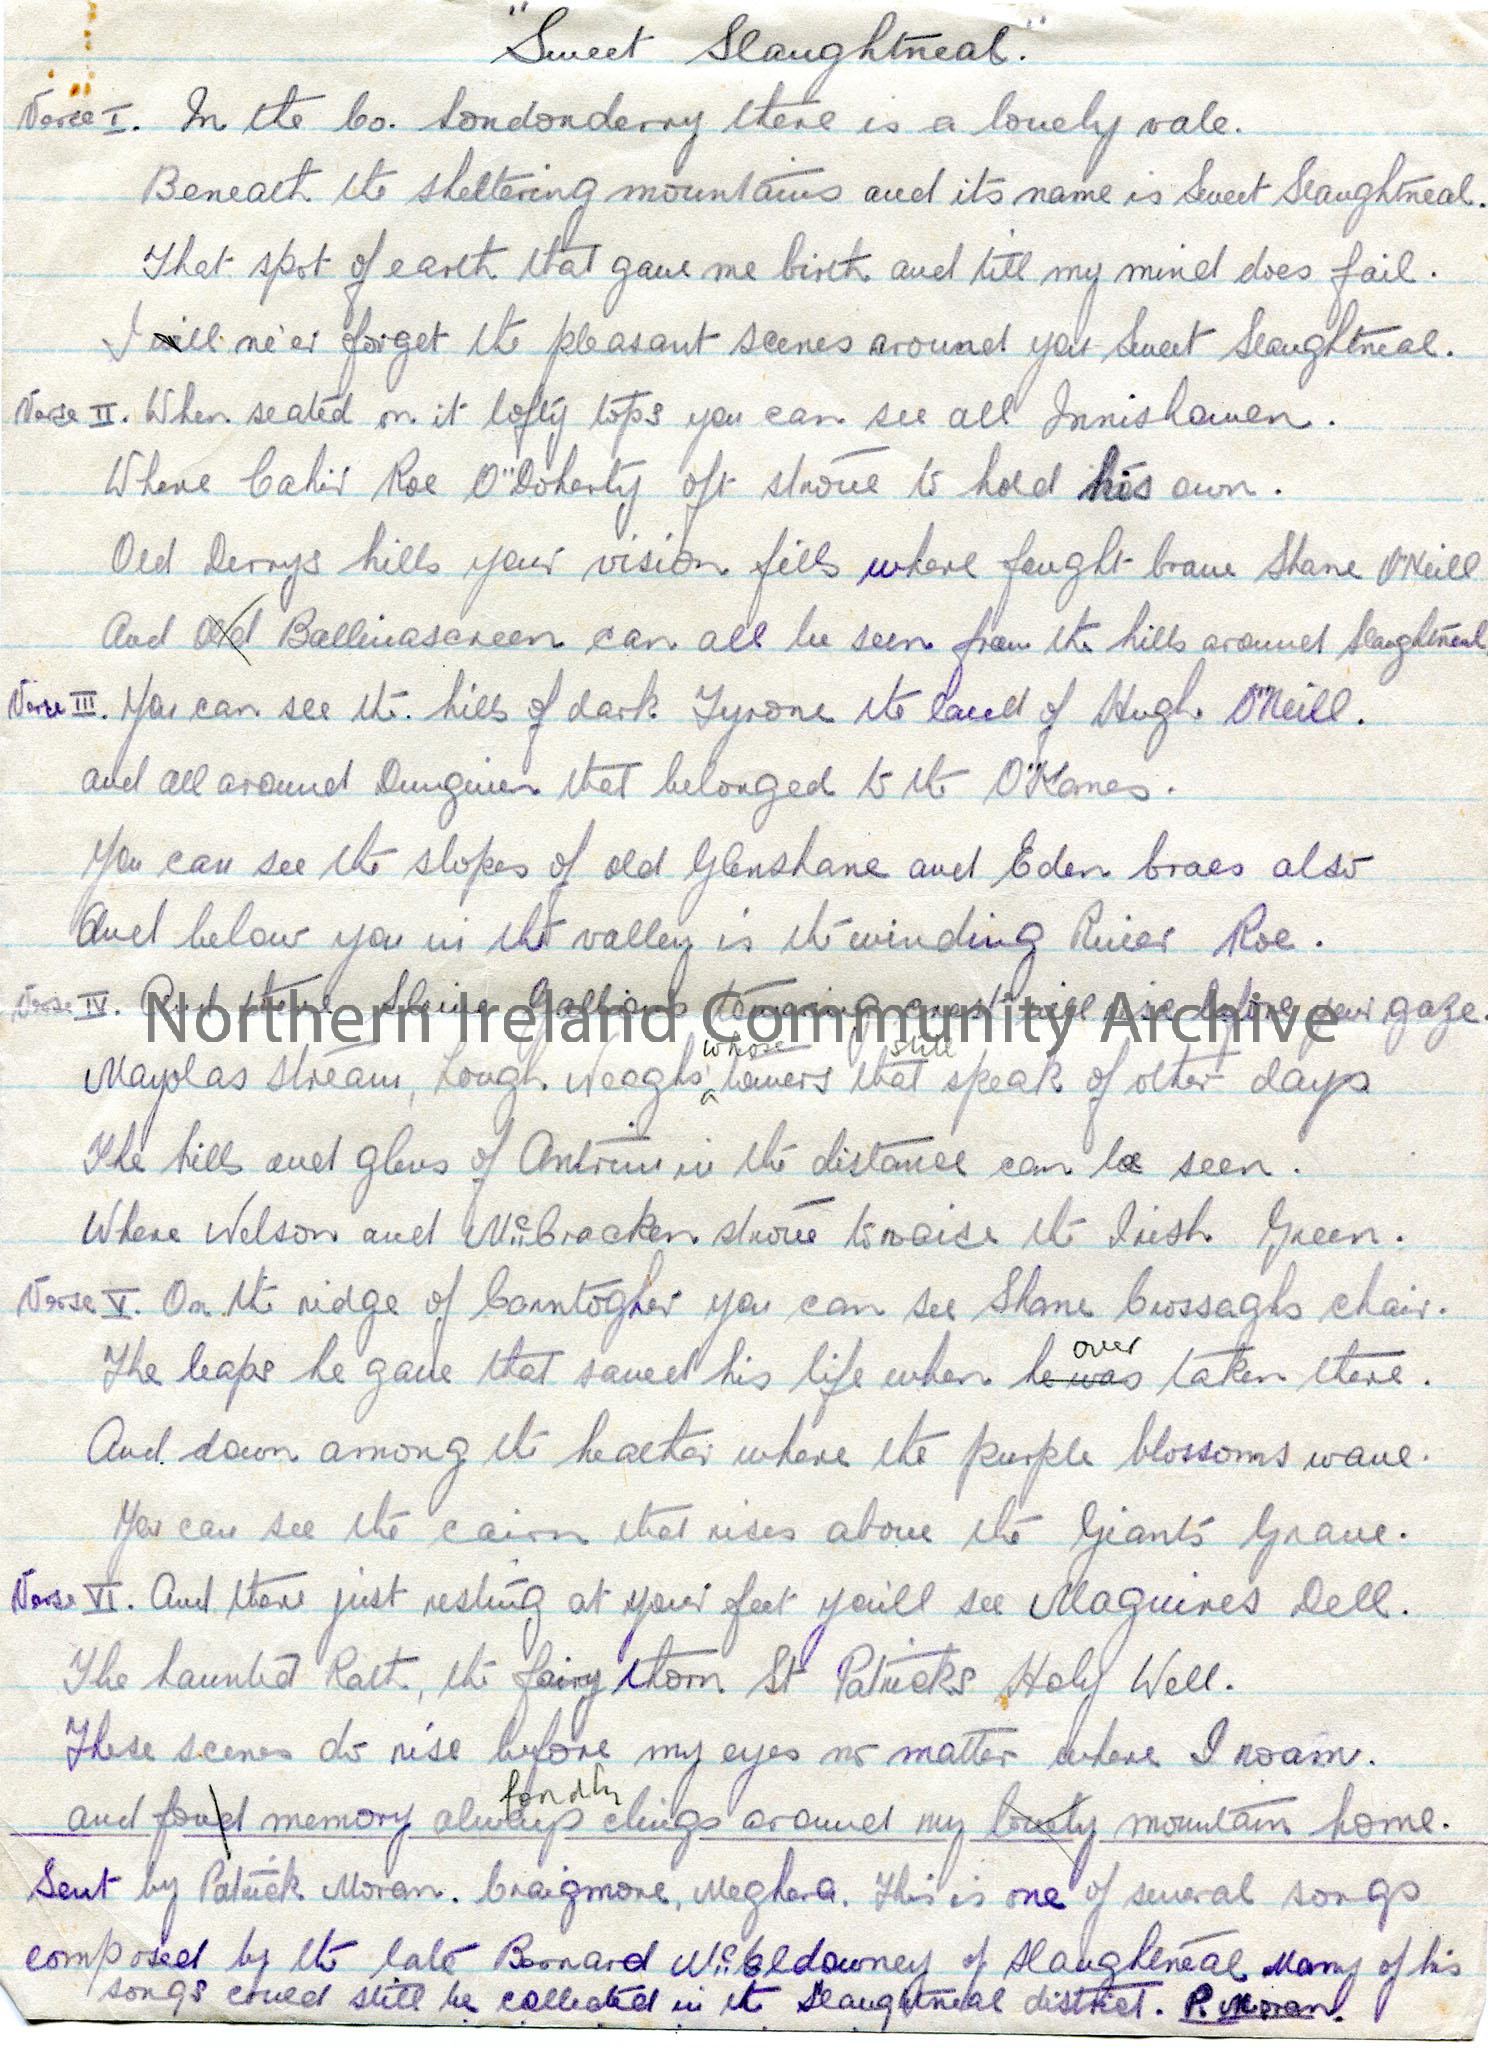 "Sweet Slaughtneal."
Verse I. In the Co. Londonderry there is a lovely vale.
Beneath the sheltering mountains and its name is Sweet Slaughtneal.
That spot of earth that gave me birth and till my mind does fail.
I will ne'er forget the pleasant scenes around you Sweet Slaughtneal.
Verse II. When seated on it lofty tops you can see all Innishowen.
Where Cahir Roe O'Doherty oft strove to hold his own.
Old Derrys hills your vision fills where fought brave Shane O'Neill
And Old Ballinascreen can all be seen from the hills around Slaughtneal.
Verse III. You can see the hills of dark Tyrone the land of Hugh O'Neill.
and all around Dungiven that belonged to the O'Kanes.
You can see the slopes of old Glenshane and Eden braes also
And below you in the valley is the winding River Roe.
Verse IV. And there Slieve Gallions towering crest will rise before your gaze.
Northern Ireland Community Archive
whose still
Mayolas stream, Lough Neaghs towers that speak of other days
The hills and glens of Antrim in the distance can be seen.
Where Nelson and McCracken strove to raise the Irish Green.
Verse V. On the ridge of Carntogher you can see Shane Crossaghs chair.
over
The leaps he gave that saved his life when he was taken there.
And down among the heather where the purple blossoms wave.
You can see the cairn that rises above the Giants Grave.
Verse VI. And there just resting at your feet you'll see Maguires Dell.
The haunted Rath, the fairy thorn St Patricks Holy Well.
These scenes do rise before my eyes no matter where I roam.
fondly
and fond memory always clings around my lovely mountain home.
Sent by Patrick Moran. Craigmore, Maghera. This is one of several songs
composed by the late Bernard McEldowney of Slaughtneal Many of his
songs could still be collected in the Slaughtneal district. P. Moran.